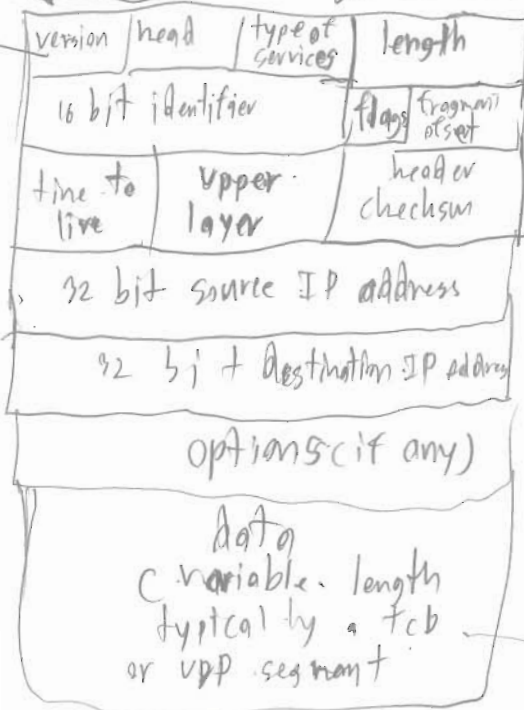 version head type of length
services
16 bit identifier flags fragment
ofset
time to upper header
live layer checksum
32 bit source IP address
32 bit Destination IP address
options (if any)
data
( variable length
typical by a tcb
or UDP segmant